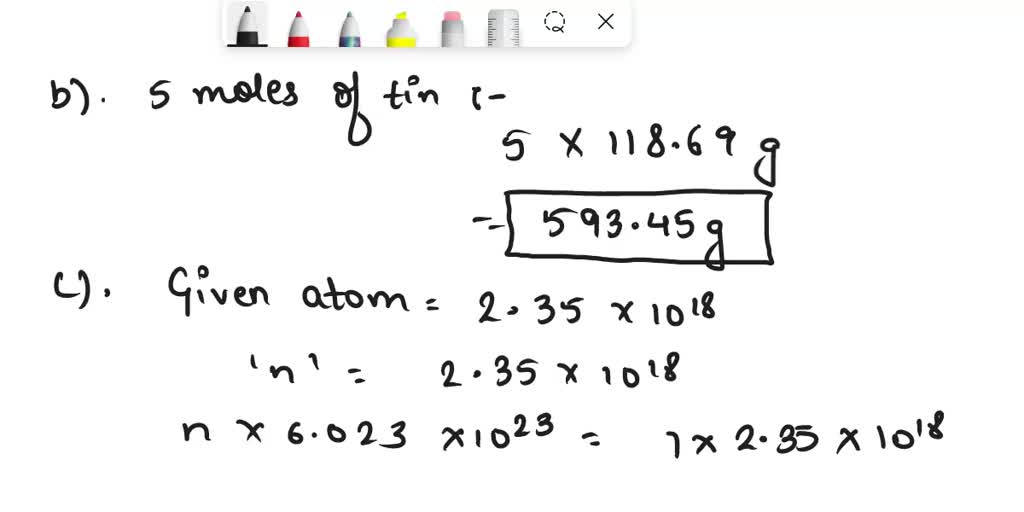 b). 5 moles of tin :-
5 × 118.69 g
= 593.45 g
c). Given atom = 2.35 × 10¹⁸
'n' = 2.35 × 10¹⁸
n × 6.023 × 10²³ = 1 × 2.35 × 10¹⁸